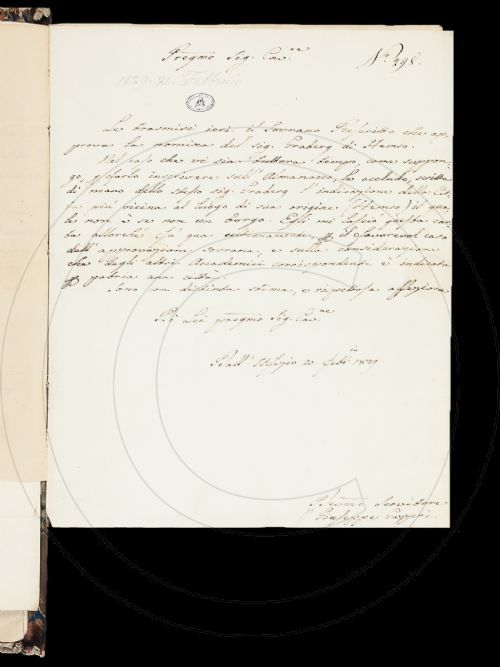 Pregmo Sig. Cav.re
No. 398.
1829. 20. Febbraio
Le trasmisi jeri il Sovrano Rescritto che ap-
prova la nomina del Sig. Graberg di Hemsö.
Nel caso che vi sia tuttora tempo, come suppon-
go, di farlo inserire nell'Almanacco, le accludo, scritta
di mano dello stesso Sig. Graberg l'indicazione della Cit-
tà più vicina al luogo di sua origine (Hemsö) il qua-
le non è se non un borgo. Egli mi lasciò questa car-
ta allorchè fù qua ultimamente, pel favorevol caso
dell'approvazione Sovrana, e sulla considerazione
che degli altri Accademici corrispondenti è indicata
per patria una città.
Sono con distinta stima, e rispettosa affezione
Di Lei pregmo Sig. Cav.re
Dall' Ufizio 20. febb.io 1829
Servitore
Giuseppe